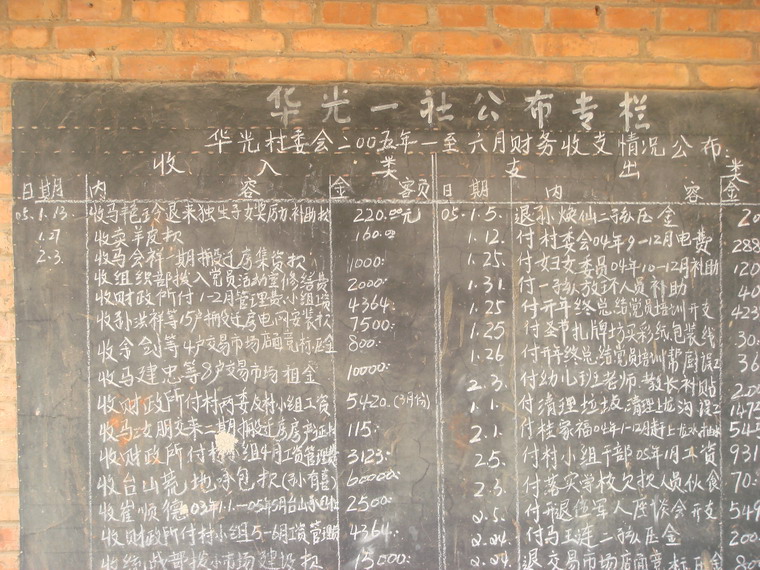 华光一社公布专栏
华光村委会二00五年一至六月财务收支情况公布:
收 入 类 支 出 类
日期 内 容 金 额 日 期 内 容 金
05.1.13. 收马 退来独生子女奖励补助款 220.00元 05.1.5. 退孙焕仙二 压金 20
1.27 收卖羊皮款 160.00 1.12. 付村委会04年9-12月电费 288
2.3. 收马会祥 期搬迁房集资款 1000: 1.25. 付妇女委员04年10-12月补助 120
收组织部拨入党员活动室修缮费 2000: 1.31. 付 人员补助 40
收财政所付1-2月管理费小组工资 4364: 1.25 付开年终总结党员培训开支 423
收孙洪祥等15户搬迁房电网安装款 7500: 1.25 付圣节扎牌坊买彩纸包装线 30:
收余剑等4户交易市场店面竞标压金 800: 1.26 付开年终总结党员培训帮厨误工 36
收马建忠等8户交易市场租金 10000: 2.3. 付幼儿班老师 教长补贴 200
收财政所付村两委及村小组工资 5420.(3月份) 1.1. 付清理垃圾清理上龙沟误工 1475
收马 朋交来二期搬迁房房产证 115: 2.1. 付桂家福04年1-12月 上龙水 545
收财政所付村小组4月工资管理费 3123: 2.5. 付村小组干部05年1月工资 931
收台山荒地承包款(孙有喜) 60000: 2.3. 付落实学校欠款人员伙食 70:
收崔顺德03年1.1.-05年5月台山 2500: 2.5. 付开退伍军人座谈会开支 549
收财政所付村小组5-6月工资管理费 4364: 2.24. 付马玉连二 压金 200
收统战部拨小市场建设款 15000: 2.24. 退交易市场店面竞标压金 800